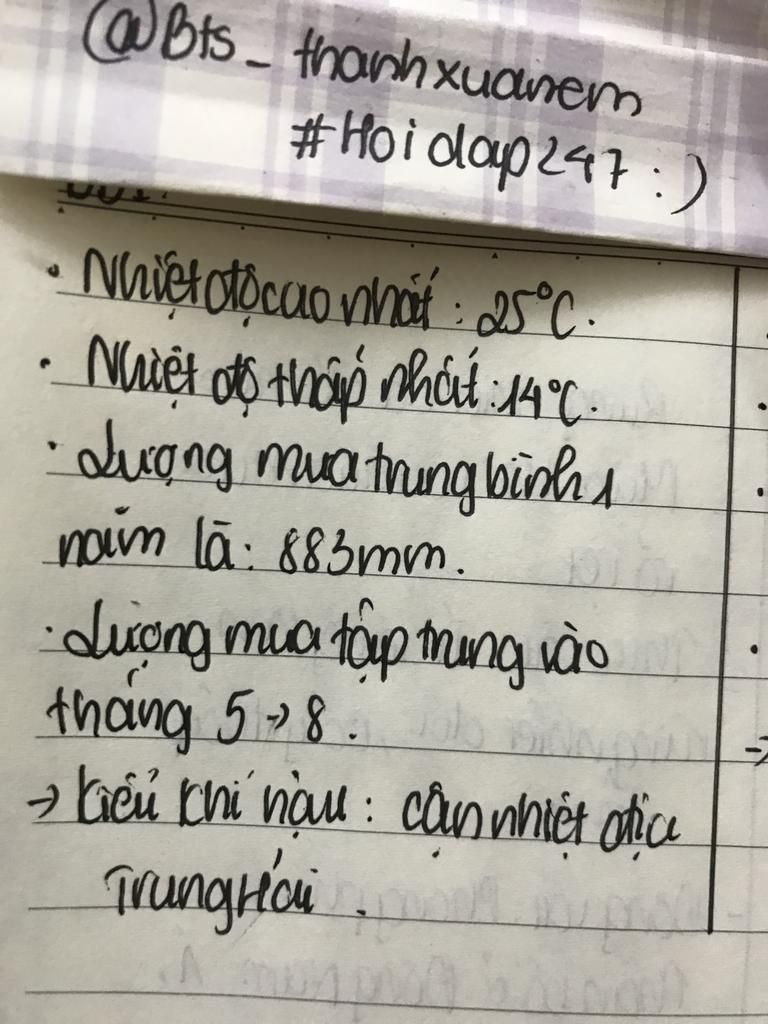 @Bts_thanhxuanem
#Hoidap247 :)
• Nhiệt độ cao nhất : 25°C.
• Nhiệt độ thấp nhất : 14°C.
• Lượng mưa trung bình 1
năm là : 883mm.
• Lượng mưa tập trung vào
tháng 5 → 8.
→ Kiểu khí hậu : cận nhiệt địa
Trung Hải .